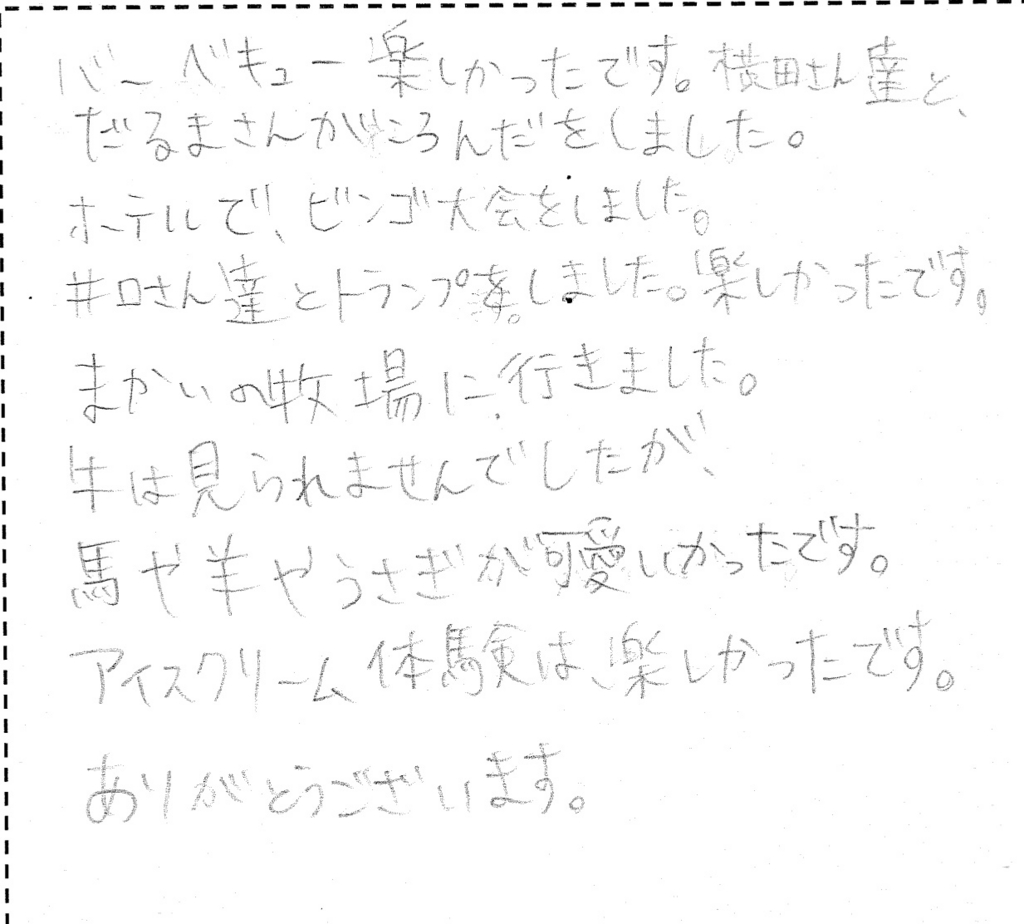 バーベキュー楽しかったです。横田さん達と、
だるまさんがころんだをしました。
ホテルで、ビンゴ大会をしました。
井口さん達とトランプをしました。楽しかったです。
まかいの牧場に、行きました。
牛は見られませんでしたが、
馬や羊やうさぎが可愛いかったです。
アイスクリーム体験は、楽しかったです。
ありがとうございます。